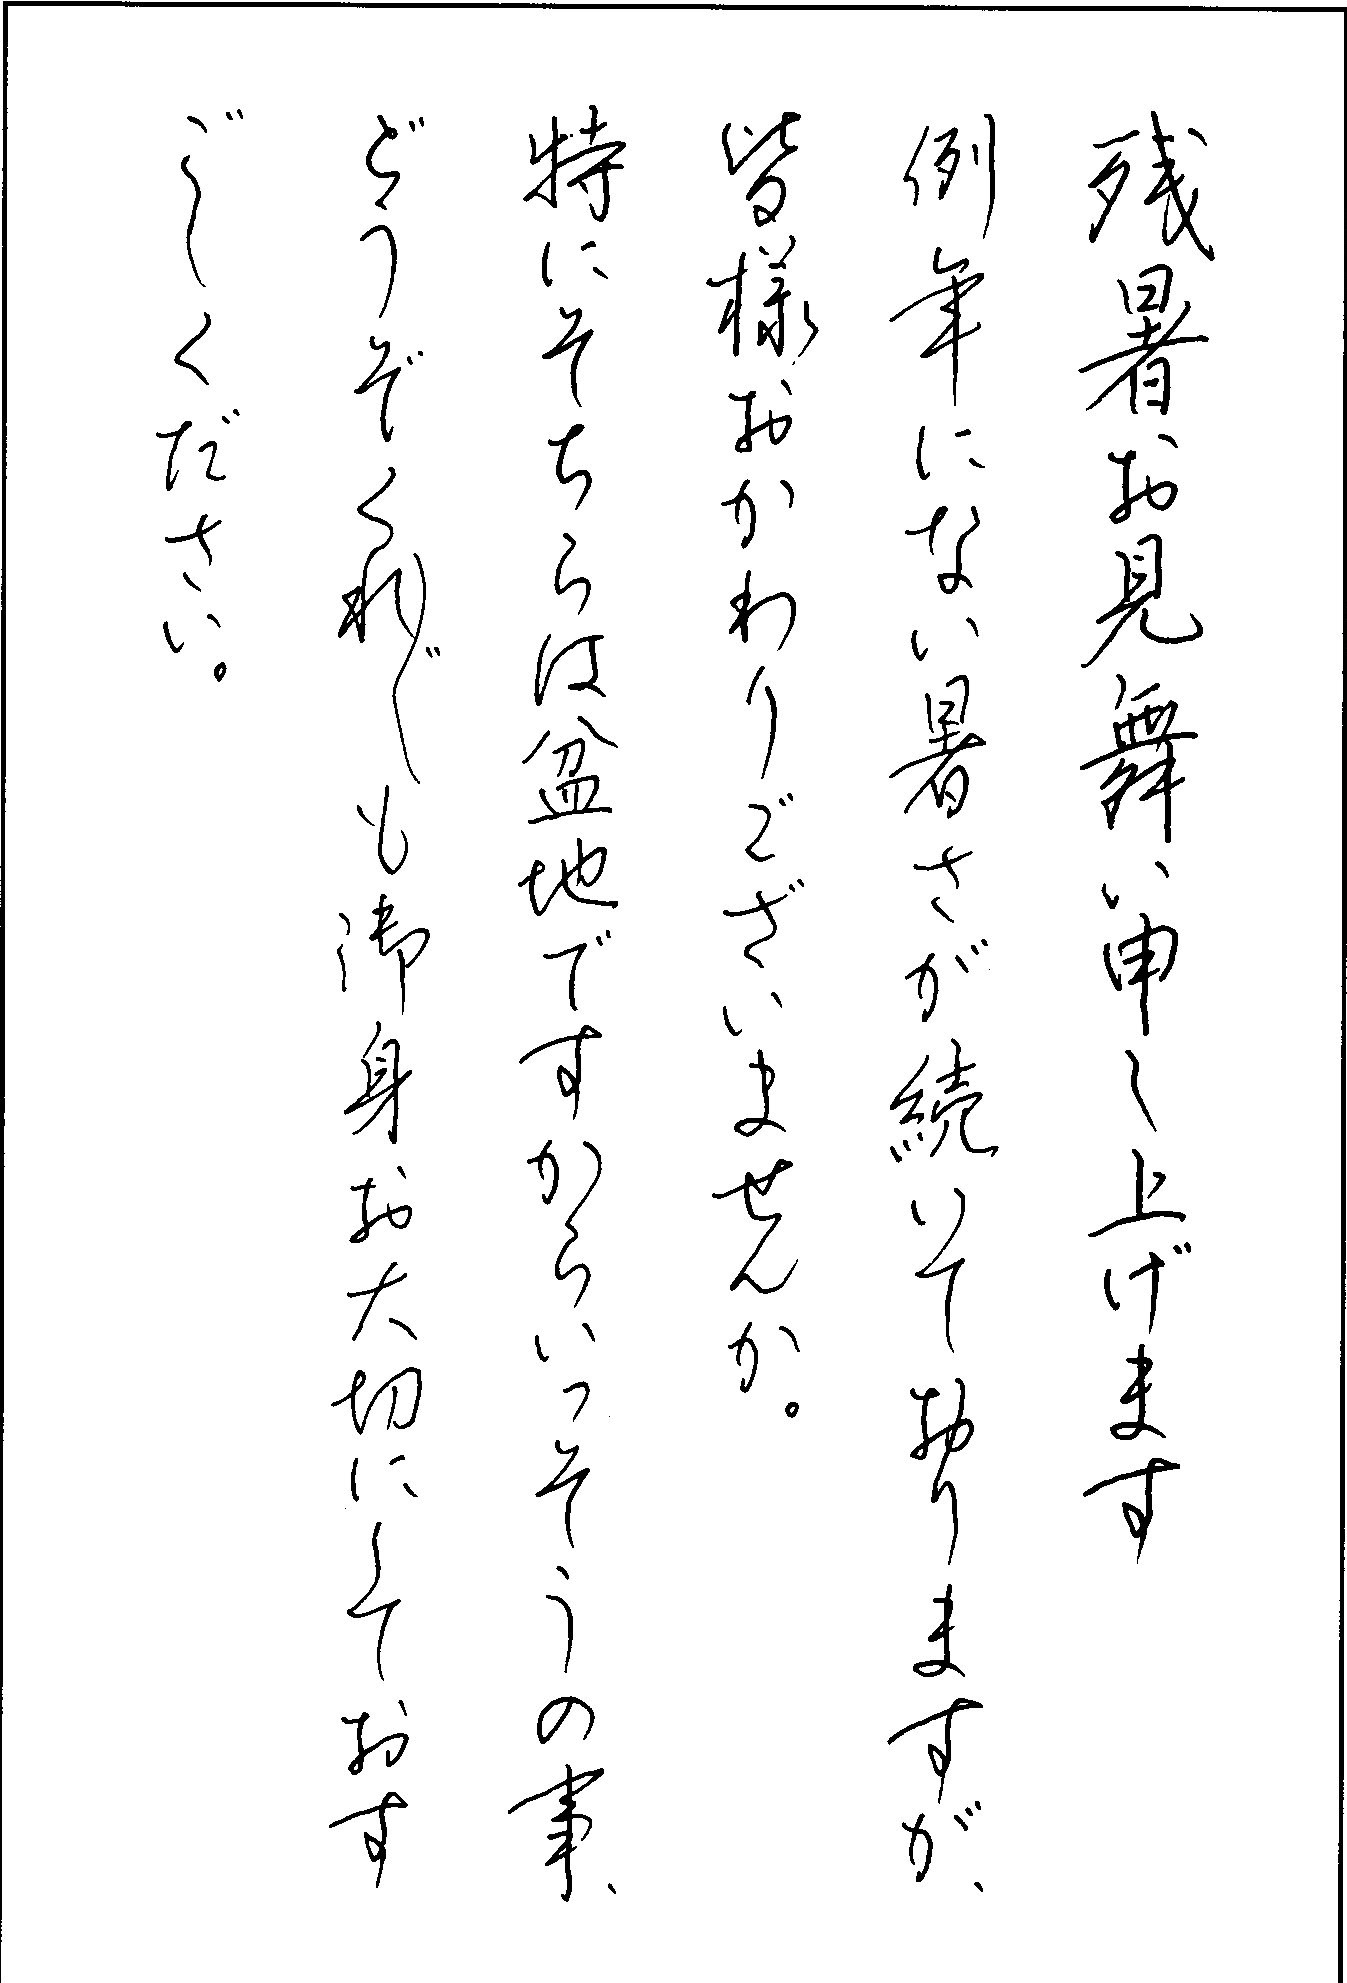 残暑お見舞い申し上げます
例年にない暑さが続いております​が、
皆様おかわりございませんか。
特にそちらは盆地ですからいっそうの事、
どうぞくれ〴〵も御身お大切にしておす
ごしください。